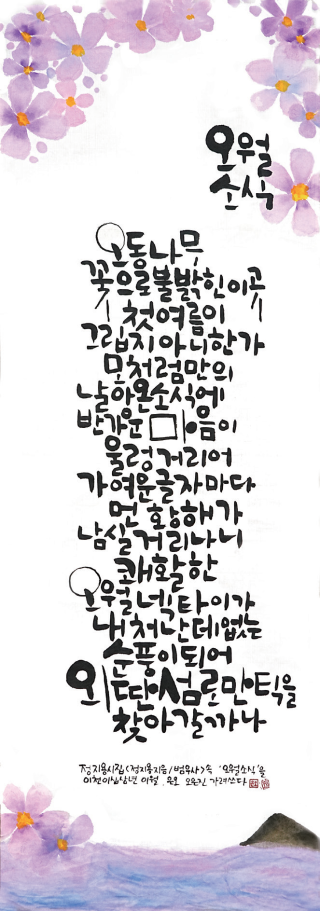 오월
소식
오동나무
꽃으로 불밝힌 이곳
첫여름이
그립지 아니한가
모처럼만의
날아온 소식에
반가운 마음이
울렁거리어
가여운 글자마다
먼 황해가
남실거리나니
쾌활한
오월넥타이가
내처 난데없는
순풍이 되어
외딴섬 로만틱을
찾아갈가나
정지용시집(정지용지음/범우사)속 '오월소식'을
이천이십삼년 이월.